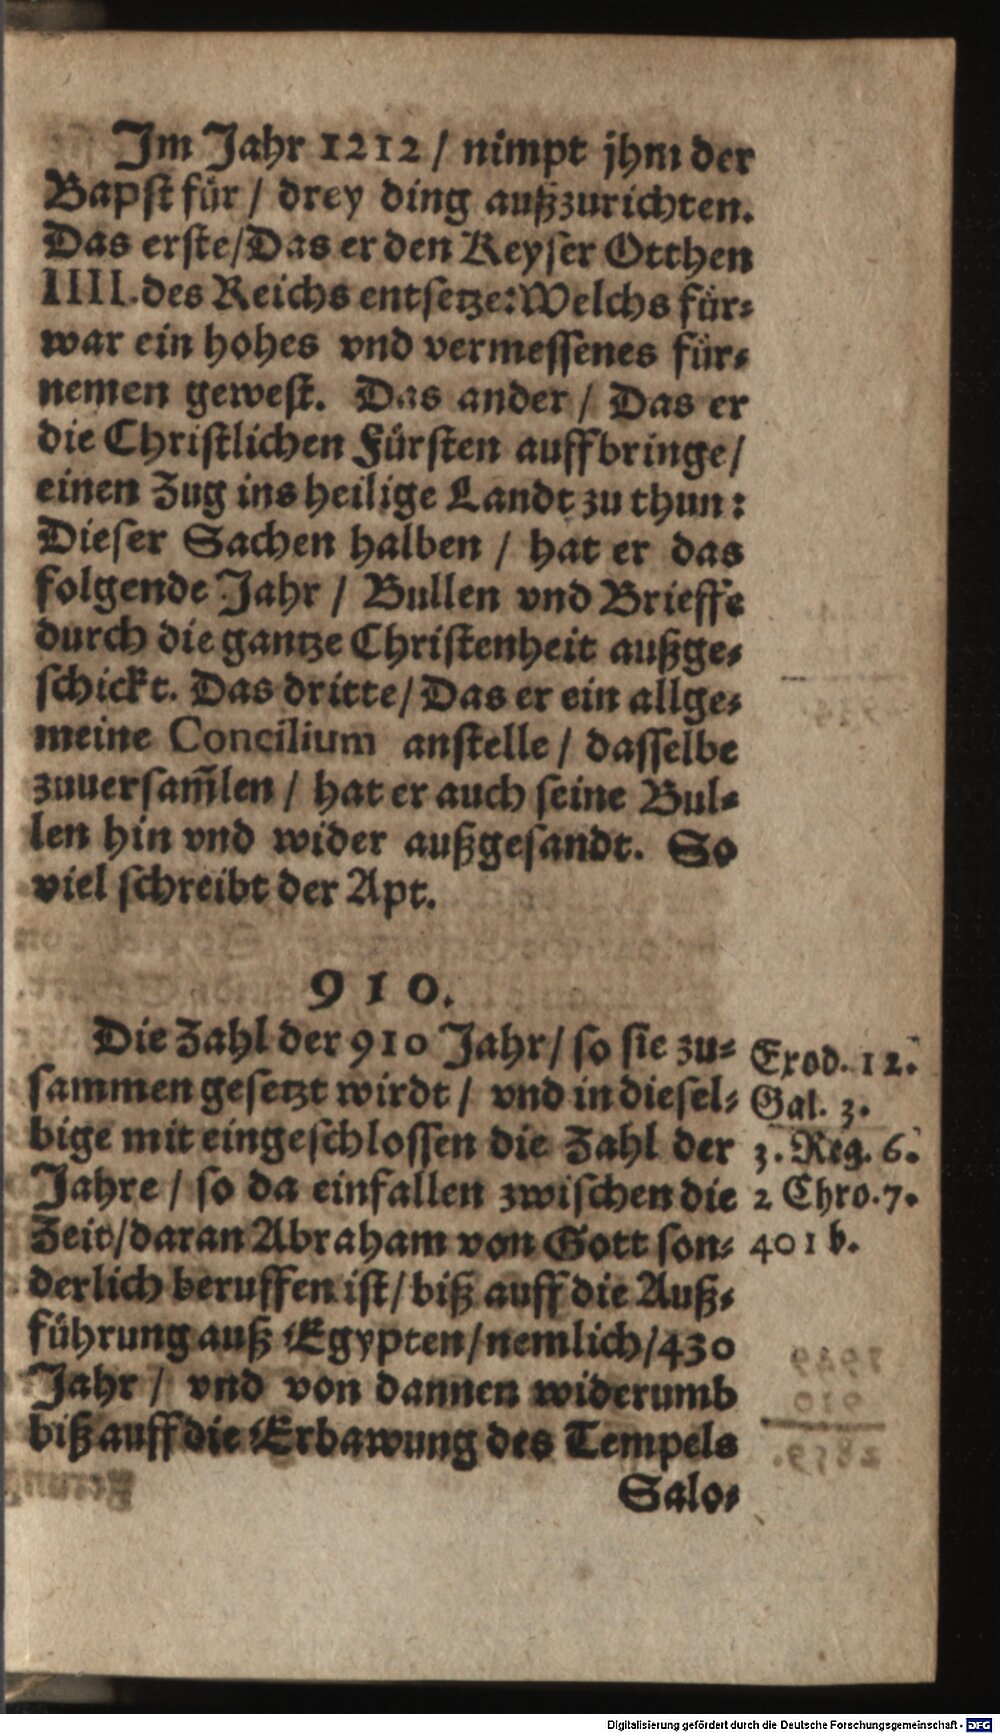 Im Jahr 1212 / nimpt jhm der
Bapst für / drey ding außzurichten.
Das erste/Das er den Keyser Otthen
IIII. des Reichs entsetze: Welchs für-
war ein hohes vnd vermessenes für-
nemen gewest. Das ander / Das er
die Christlichen Fürsten auffbringe/
einen Zug ins heilige Landt zu thun:
Dieser Sachen halben / hat er das
folgende Jahr / Bullen vnd Brieffe
durch die gantze Christenheit außge-
schickt. Das dritte/Das er ein allge-
meine Concilium anstelle / dasselbe
zuuersam̃len / hat er auch seine Bul-
len hin vnd wider außgesandt. So
viel schreibt der Apt.
910.
Die Zahl der 910 Jahr/ so sie zu-
sammen gesetzt wirdt / vnd in diesel-
bige mit eingeschlossen die Zahl der
Jahre / so da einfallen zwischen die
Zeit/daran Abraham von Gott son-
derlich beruffen ist/ biß auff die Auß-
führung auß Egypten/nemlich/430
Jahr / vnd von dannen widerumb
biß auff die Erbawung des Tempels
Salo-
Exod. 12.
Gal. 3.
3. Reg. 6.
2 Chro. 7.
401 b.
Digitalisierung gefördert durch die Deutsche Forschungsgemeinschaft - DFG